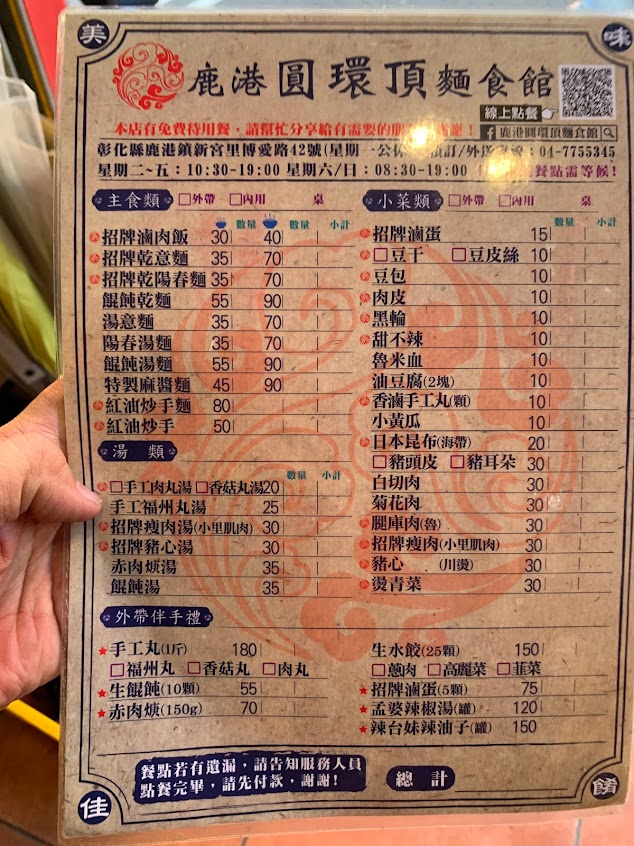 美
味
鹿港圓環頂麵食館
線上點餐
鹿港圓環頂麵食館
本店有免費待用餐，請幫忙分享給有需要的朋
謝！
彰化縣鹿港鎮新宮里博愛路42號(星期一公休
預訂/外送
：04-7755345
星期二~五：10:30-19:00 星期六/日：08:30-19:00
餐點需等候！
主食類 □外帶 □內用 桌
數量 數量 小計
招牌滷肉飯 30 40
招牌乾意麵 35 70
招牌乾陽春麵 35 70
餛飩乾麵 55 90
湯意麵 35 70
陽春湯麵 35 70
餛飩湯麵 55 90
特製麻醬麵 45 90
紅油炒手麵 80
紅油炒手 50
湯類
數量 小計
□手工肉丸湯 □香菇丸湯 20
手工福州丸湯 25
招牌瘦肉湯(小里肌肉) 30
招牌豬心湯 30
赤肉焿湯 35
餛飩湯 35
小菜類 □外帶 □內用 桌
數量 小計
招牌滷蛋 15
□豆干 □豆皮絲 10
豆包 10
肉皮 10
黑輪 10
甜不辣 10
魯米血 10
油豆腐(2塊) 10
香滷手工丸(顆) 10
小黃瓜 10
日本昆布(海帶) 20
□豬頭皮 □豬耳朵 30
白切肉 30
菊花肉 30
腿庫肉(魯) 30
招牌瘦肉(小里肌肉) 30
豬心 (川燙) 30
燙青菜 30
外帶伴手禮
手工丸(1斤) 180
□福州丸 □香菇丸 □肉丸
生餛飩(10顆) 55
赤肉焿(150g) 70
生水餃(25顆) 150
□蔥肉 □高麗菜 □韮菜
招牌滷蛋(5顆) 75
孟婆辣椒湯(罐) 120
辣台妹辣油子(罐) 150
餐點若有遺漏，請告知服務人員
點餐完畢，請先付款，謝謝！
總計
佳
餚